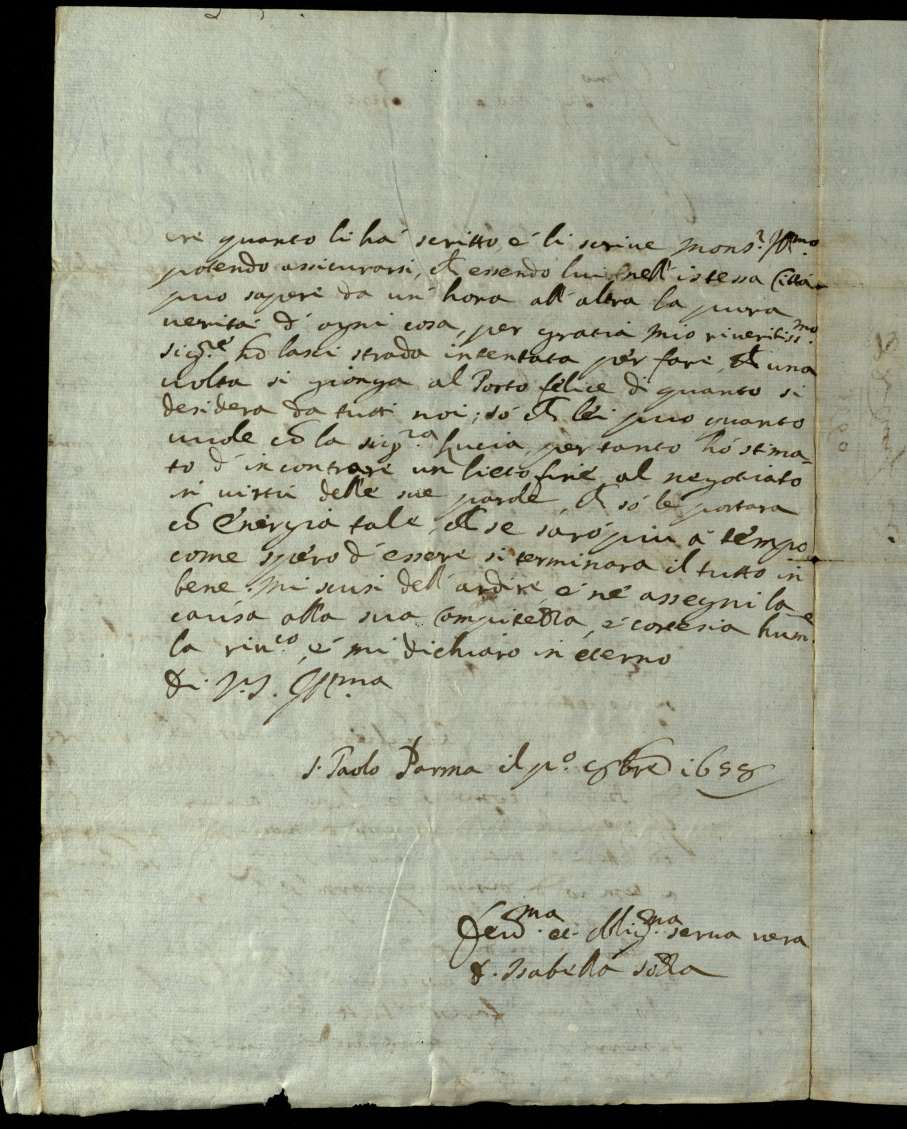 ere quanto li há scritto, é li scriue Mons.r Ill.mo
potendo assicurarsi, ch essendo lui nell istessa Città
puo sapere da un' hora all' altra la pura
ueritá d' ogni cosa, per gratia mio riueritiss.mo
Sig.re nō lasci strada intentata per fare, ch una
uolta si gionga al Porto felice di quanto si
desidera da tutti noi; só ch lei puo quanto
uuole cō la sig.ra Lucia, pertanto hó stima-
to d' incontrare un lieto fine al negotiato
in uirtù delle sue parole, ch só le portara
cō énergia tale, ch se saró piu á tempo
come spero d' essere si terminara il tutto in
bene. Mi scusi dell' ardire é ne assegni la
causa alla sua Compitezza, é cortesia hum.e
la riu.co, é mi dichiaro in eterno
Di V.S. Ill.ma
S. Paolo Parma il p.o 8bre 1658
Deu.ma et Oblig.ma serua uera
D. Isabella